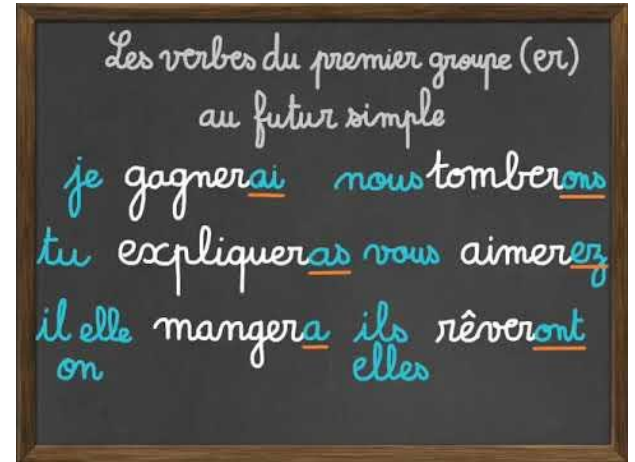 Les verbes du premier groupe (er)
au futur simple
je gagnerai nous tomberons
tu expliqueras vous aimerez
il elle mangera ils rêveront
on elles